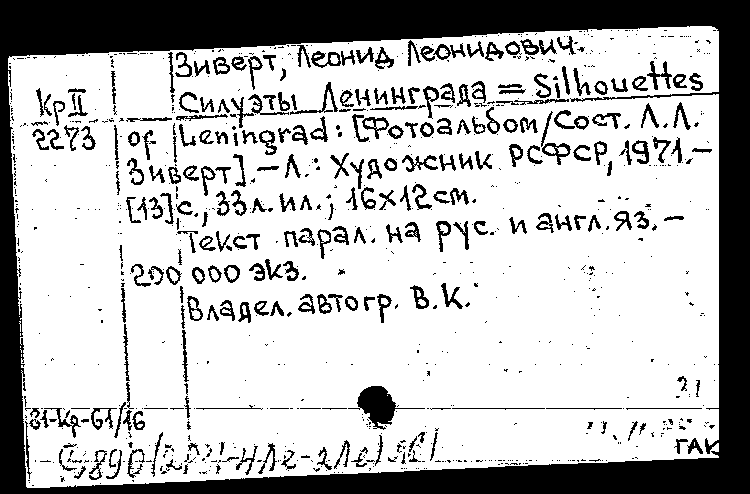 Зиверт, Леонид Леонидович.
Кр II Силуэты Ленинграда = Silhouettes
2273 of Leningrad: [Фотоальбом/Сост. Л.Л.
Зиверт]. — Л.: Художник РСФСР, 1971. —
[13]с., 33л. ил.; 16х12см.
Текст парал. на рус. и англ. яз. —
200 000 экз.
Владел. автогр. В.К.
31
81-Кр-61/16
ГАК